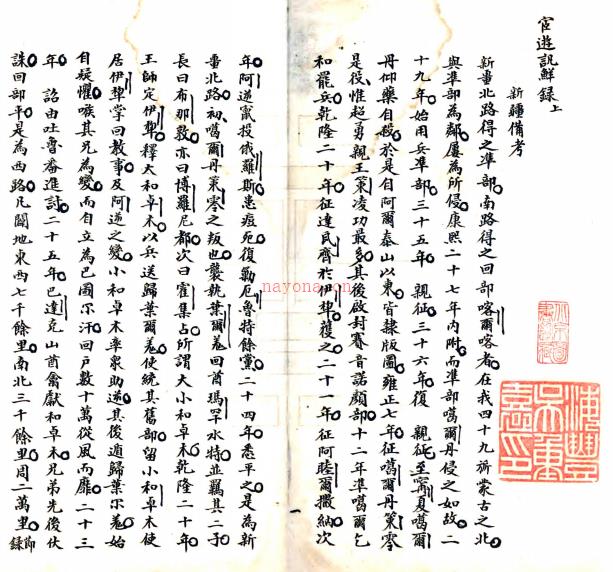 宦遊訊鮮錄上
新疆備考
新畺北路得之準部南路得之回部喀爾喀者在我四十九旂蒙古之北
與準部為鄰屢為所侵康熙二十七年内附而準部噶爾丹侵之如故二
十九年始用兵準部三十五年 親征三十六年復 親征至寧夏噶爾
丹仰藥自殺於是自阿爾泰山以東皆隸版圖雍正七年征噶爾丹策零
是役惟超勇親王策凌功最多其後啟封賽音諾顏部十二年準噶爾乞
和罷兵乾隆二十年征達瓦齊於伊犂獲之二十一年征阿睦爾撒納次
年阿逆竄投俄羅斯患痘死復勦厄魯特餘黨二十四年悉平之是為新
畺北路初噶爾丹策零之叛也襲執葉爾羌回酋瑪罕木特並羈其二子
長曰布那敦亦曰博羅尼都次曰霍集占所謂大小和卓木乾隆二十年
王師定伊犂釋大和卓木以兵送歸葉爾羌使統其舊部留小和卓木使
居伊犂掌回教事及阿逆之變小和卓木率衆助逆其後遁歸葉尔羌始
自疑懼嗾其兄為變而自立為巴圖尔汗回戶數十萬從風而靡二十三
年 詔由吐魯番進討二十五年巴達克山酋禽獻和卓木兄弟先後伏
誅回部平是為西路凡闢地東西七千餘里南北三千餘里周二萬里節錄
nayona.cn